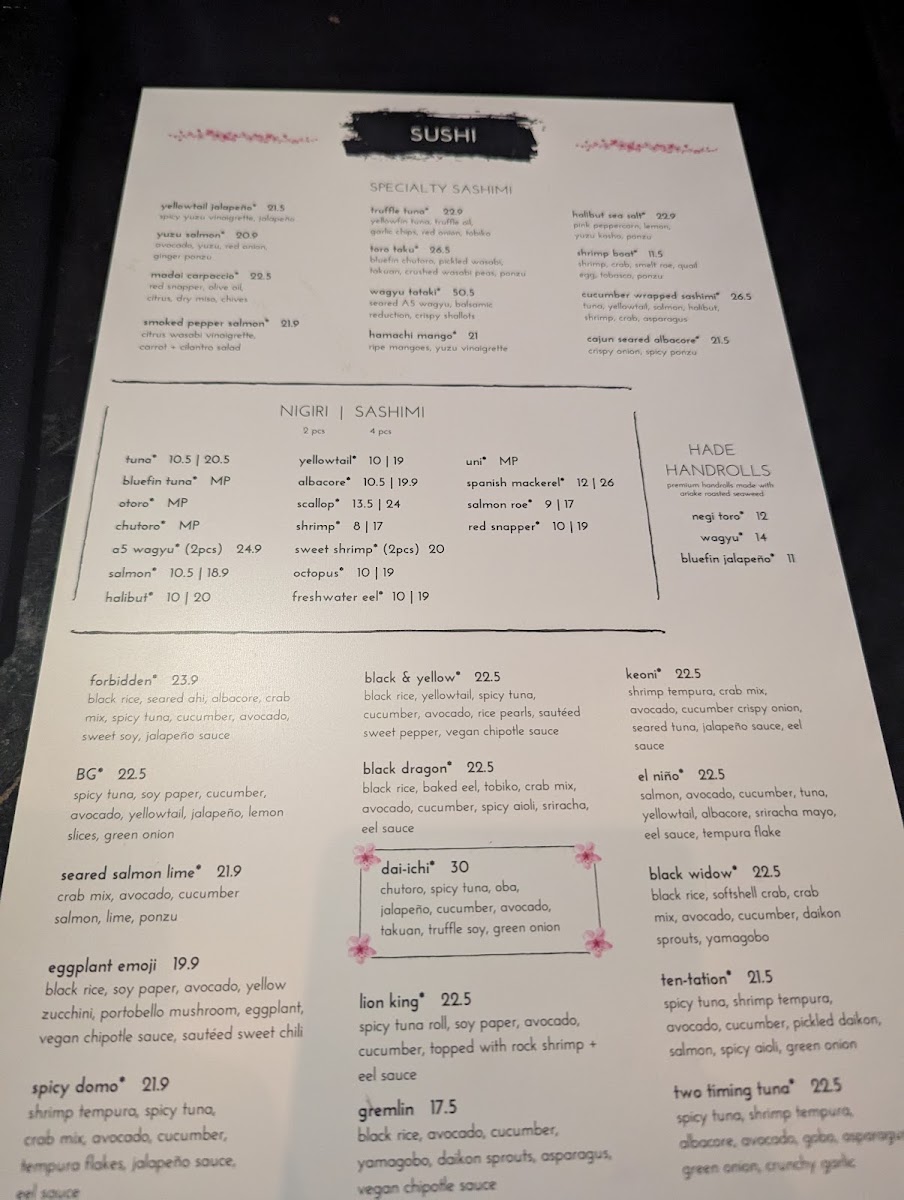 SUSHI
SPECIALTY SASHIMI
yellowtail jalapeño* 21.5
spicy yuzu vinaigrette, jalapeño
yuzu salmon* 20.9
avocado, yuzu, red onion,
ginger ponzu
madai carpaccio* 22.5
red snapper, olive oil,
citrus, dry miso, chives
smoked pepper salmon* 21.9
citrus wasabi vinaigrette,
carrot + cilantro salad
truffle tuna* 22.9
yellowfin tuna, truffle oil,
garlic chips, red onion, tobiko
toro taku* 26.5
bluefin chutoro, pickled wasabi,
takuan, crushed wasabi peas, ponzu
wagyu tataki* 50.5
seared A5 wagyu, balsamic
reduction, crispy shallots
hamachi mango* 21
ripe mangoes, yuzu vinaigrette
halibut sea salt* 22.9
pink peppercorn, lemon,
yuzu kosho, ponzu
shrimp boat* 11.5
shrimp, crab, smelt roe, quail
egg, tobasco, ponzu
cucumber wrapped sashimi* 26.5
tuna, yellowtail, salmon, halibut,
shrimp, crab, asparagus
cajun seared albacore* 21.5
crispy onion, spicy ponzu
NIGIRI | SASHIMI
2 pcs 4 pcs
tuna* 10.5 | 20.5
bluefin tuna* MP
otoro* MP
chutoro* MP
a5 wagyu* (2pcs) 24.9
salmon* 10.5 | 18.9
halibut* 10 | 20
yellowtail* 10 | 19
albacore* 10.5 | 19.9
scallop* 13.5 | 24
shrimp* 8 | 17
sweet shrimp* (2pcs) 20
octopus* 10 | 19
freshwater eel* 10 | 19
uni* MP
spanish mackerel* 12 | 26
salmon roe* 9 | 17
red snapper* 10 | 19
HADE
HANDROLLS
premium handrolls made with
ariake roasted seaweed
negi toro* 12
wagyu* 14
bluefin jalapeño* 11
forbidden* 23.9
black rice, seared ahi, albacore, crab
mix, spicy tuna, cucumber, avocado,
sweet soy, jalapeño sauce
BG* 22.5
spicy tuna, soy paper, cucumber,
avocado, yellowtail, jalapeño, lemon
slices, green onion
seared salmon lime* 21.9
crab mix, avocado, cucumber
salmon, lime, ponzu
eggplant emoji 19.9
black rice, soy paper, avocado, yellow
zucchini, portobello mushroom, eggplant,
vegan chipotle sauce, sautéed sweet chili
spicy domo* 21.9
shrimp tempura, spicy tuna,
crab mix, avocado, cucumber,
tempura flakes, jalapeño sauce,
eel sauce
black & yellow* 22.5
black rice, yellowtail, spicy tuna,
cucumber, avocado, rice pearls, sautéed
sweet pepper, vegan chipotle sauce
black dragon* 22.5
black rice, baked eel, tobiko, crab mix,
avocado, cucumber, spicy aioli, sriracha,
eel sauce
dai-ichi* 30
chutoro, spicy tuna, oba,
jalapeño, cucumber, avocado,
takuan, truffle soy, green onion
lion king* 22.5
spicy tuna roll, soy paper, avocado,
cucumber, topped with rock shrimp +
eel sauce
gremlin 17.5
black rice, avocado, cucumber,
yamagobo, daikon sprouts, asparagus,
vegan chipotle sauce
keoni* 22.5
shrimp tempura, crab mix,
avocado, cucumber crispy onion,
seared tuna, jalapeño sauce, eel
sauce
el niño* 22.5
salmon, avocado, cucumber, tuna,
yellowtail, albacore, sriracha mayo,
eel sauce, tempura flake
black widow* 22.5
black rice, softshell crab, crab
mix, avocado, cucumber, daikon
sprouts, yamagobo
ten-tation* 21.5
spicy tuna, shrimp tempura,
avocado, cucumber, pickled daikon,
salmon, spicy aioli, green onion
two timing tuna* 22.5
spicy tuna, shrimp tempura,
albacore, avocado, gobo, asparagus
green onion, crunchy garlic